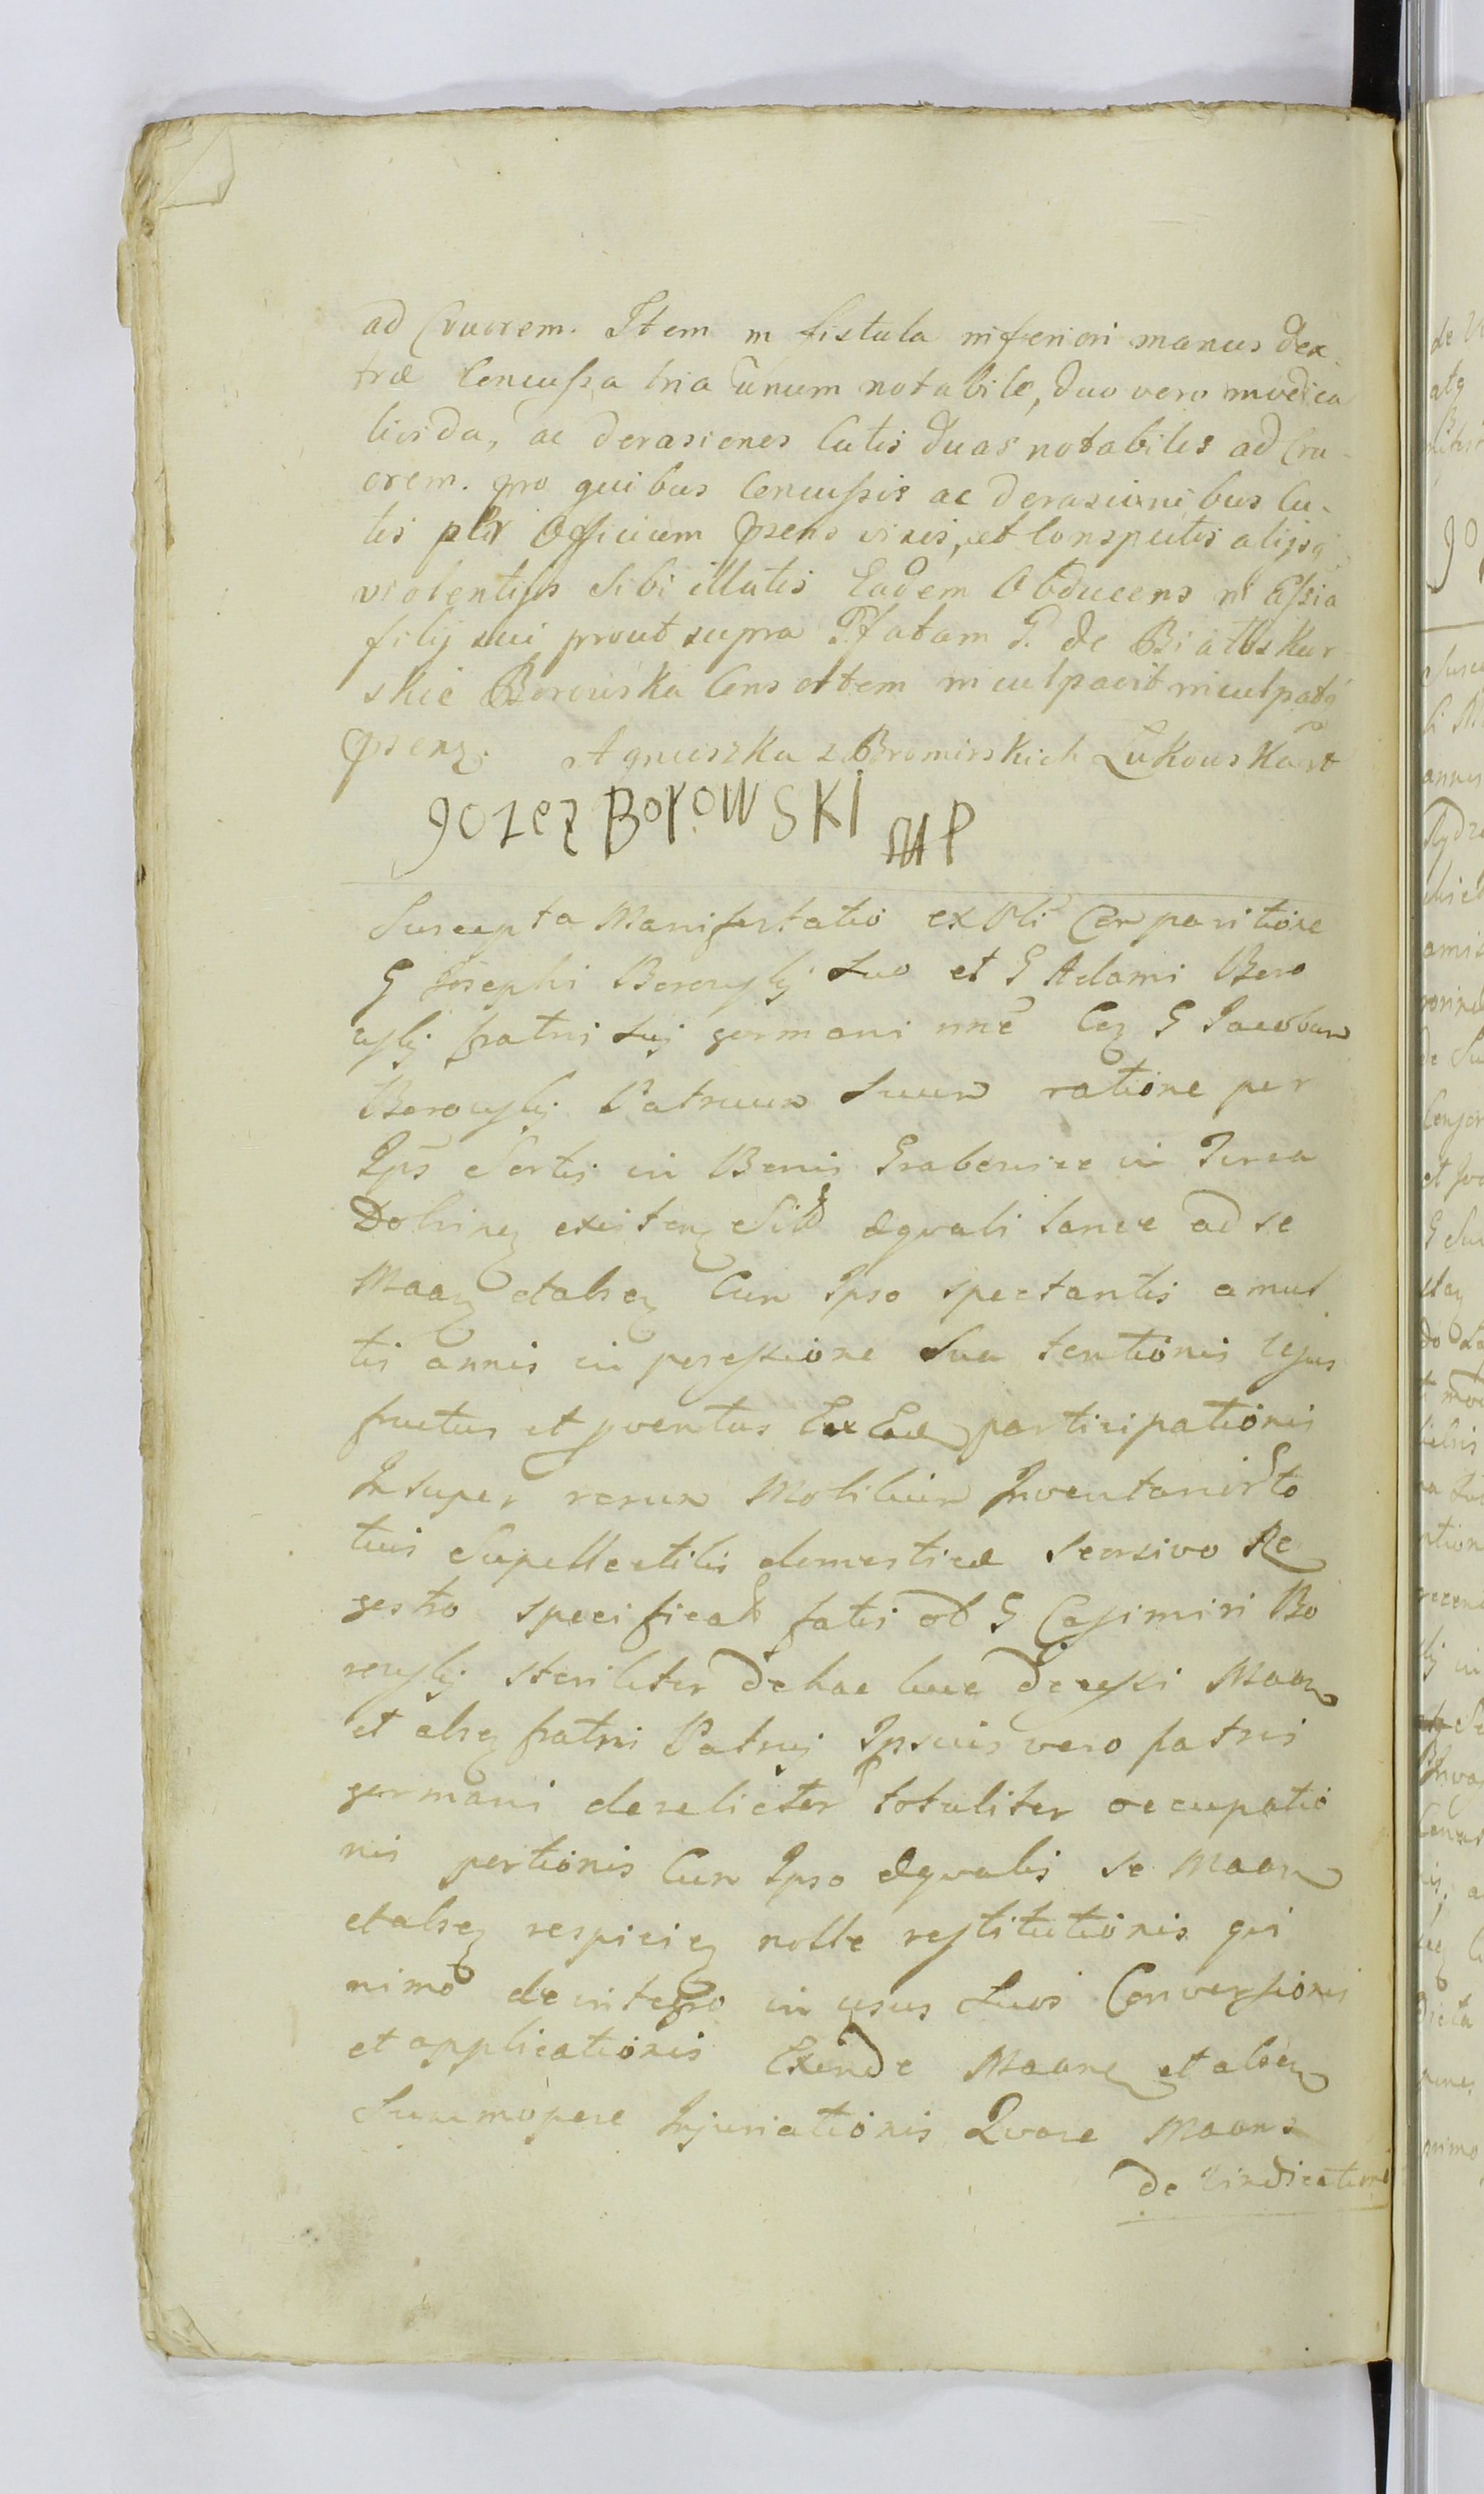 ad Cruorem. Item in fistula inferiori manus dex-
træ Concussa tria unum notabile, duo vero modica
livida, ac derasiones Cutis duas notabiles ad Cru-
orem. pro quibus Concussis ac derasionibus Cu-
tis per Officium Psens visis, et Conspectis alijsq
violentijs Sibi illatis Eadem Obducens
filij sui prout supra Pfatam G. de Białoskur
skie Borowska Consortem inculpavit inculpatq
Psenz. Agnieszka z Bromirskich Łukowska
Jozez BoroWSKi MP
Suscepta Manifestatio ex Obli Comparitione
G Josephi Borowskj Suo et G Adami Boro
wskj fratris Suj germani nne Coz G Jacobum
Borowskj Patruum Suum ratione per
Ips Sortis in Bonis Grabowiec in Terra
Dobrinez existenz Sibi æquali lance ad se
Maaz etabsez Cum Ipso spectantis a mul
tis annis in possessione Sua tentionis ejus
fructus et pventus Ex Eadz participationis
Insuper rerum Mobilium Inventarii to
tius Supellectilis domesticæ Seorsivo Re
gestro specificat fatis ob G Casimiri Bo
rowskj steriliter de hac luce decessi Maaz
et absz fratri Patruj Ipsius vero fatris
germani derelicter totaliter occupatio
nis portionis Cum Ipso æqualis se Maaz
etabsez respiciez nolle restitutionis qui
nimo de integro in usus Suos Conversionis
et applicationis Exinde Maanz et absez
Summopere Injuriationis Qvare Maans
de vindicatione